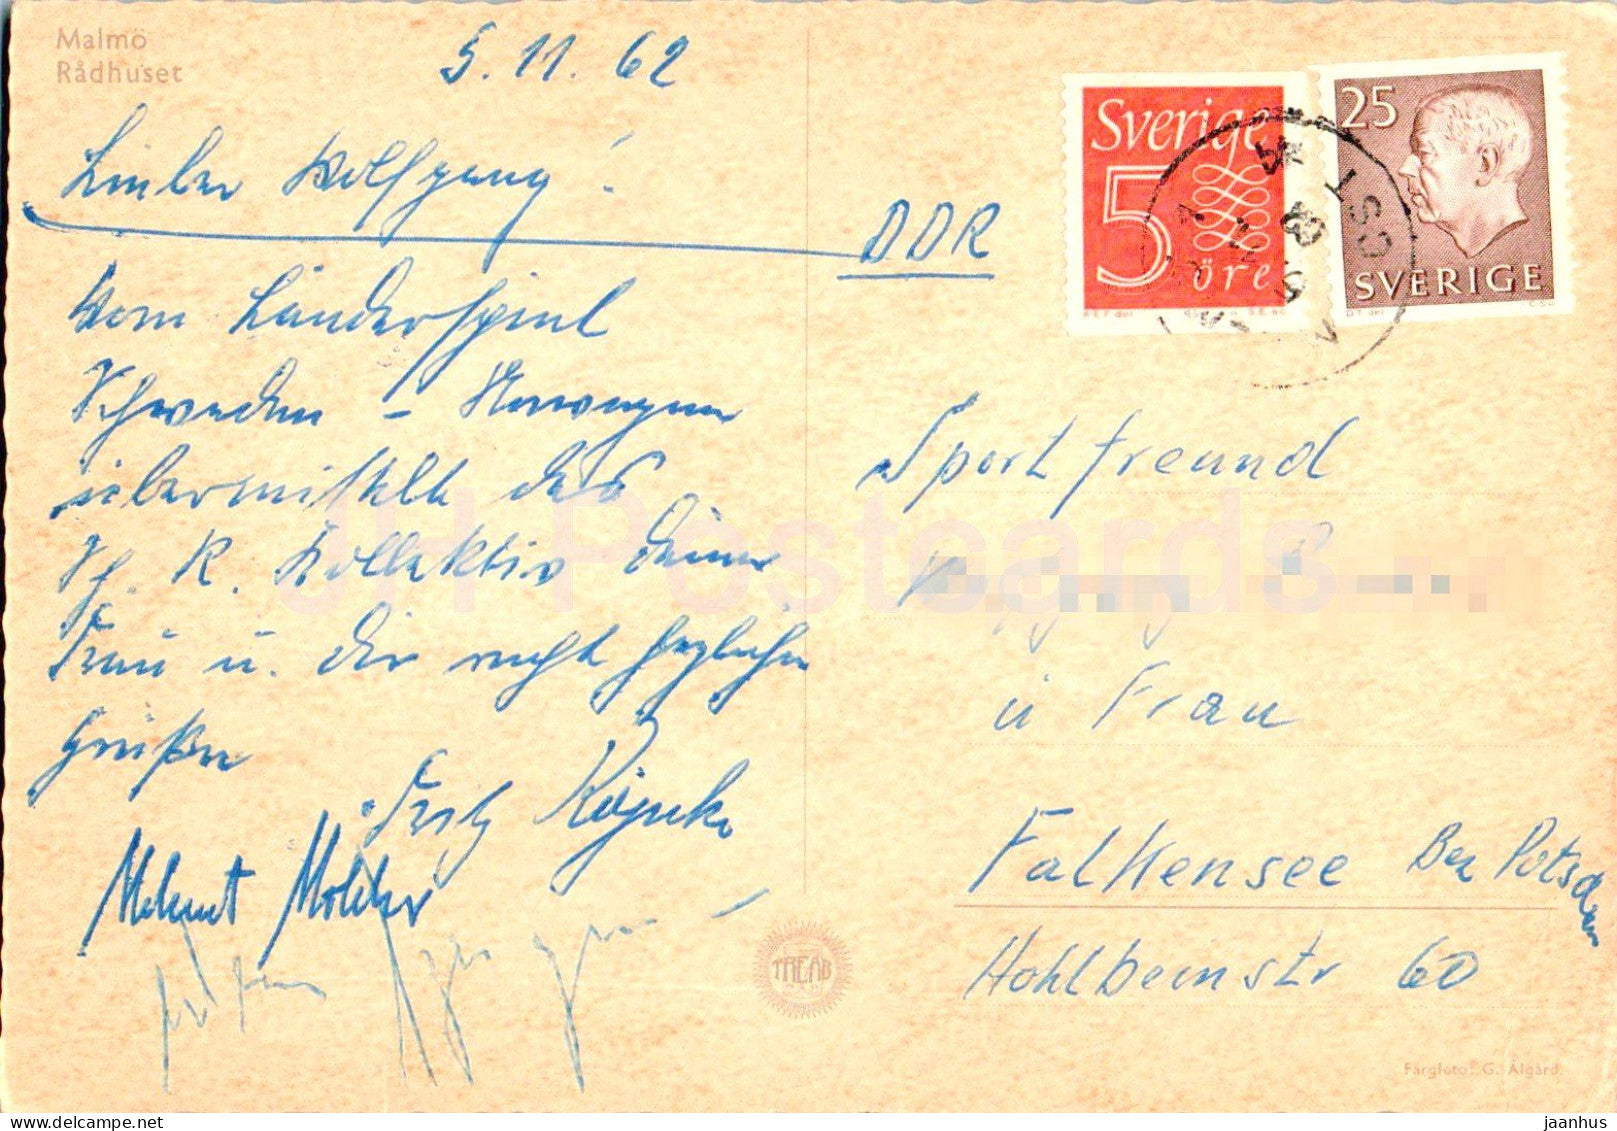 Malmö
Rådhuset
5. 11. 62
Lieber Wolfgang!
Vom Länderspiel
Schweden – Norwegen
übermittelt das
Sch. R. Kollektiv Deiner
Frau u. Dir recht herzliche
Grüße
Fritz
Helmut
DDR
Sverige
5
öre
25
SVERIGE
Sportfreund
u Frau
Falkensee Bei Potsdam
Hohlbeinstr 60
TREAB
Färgfoto: G. Ålgård.
JH Postcards
delcampe.net
jaanhus